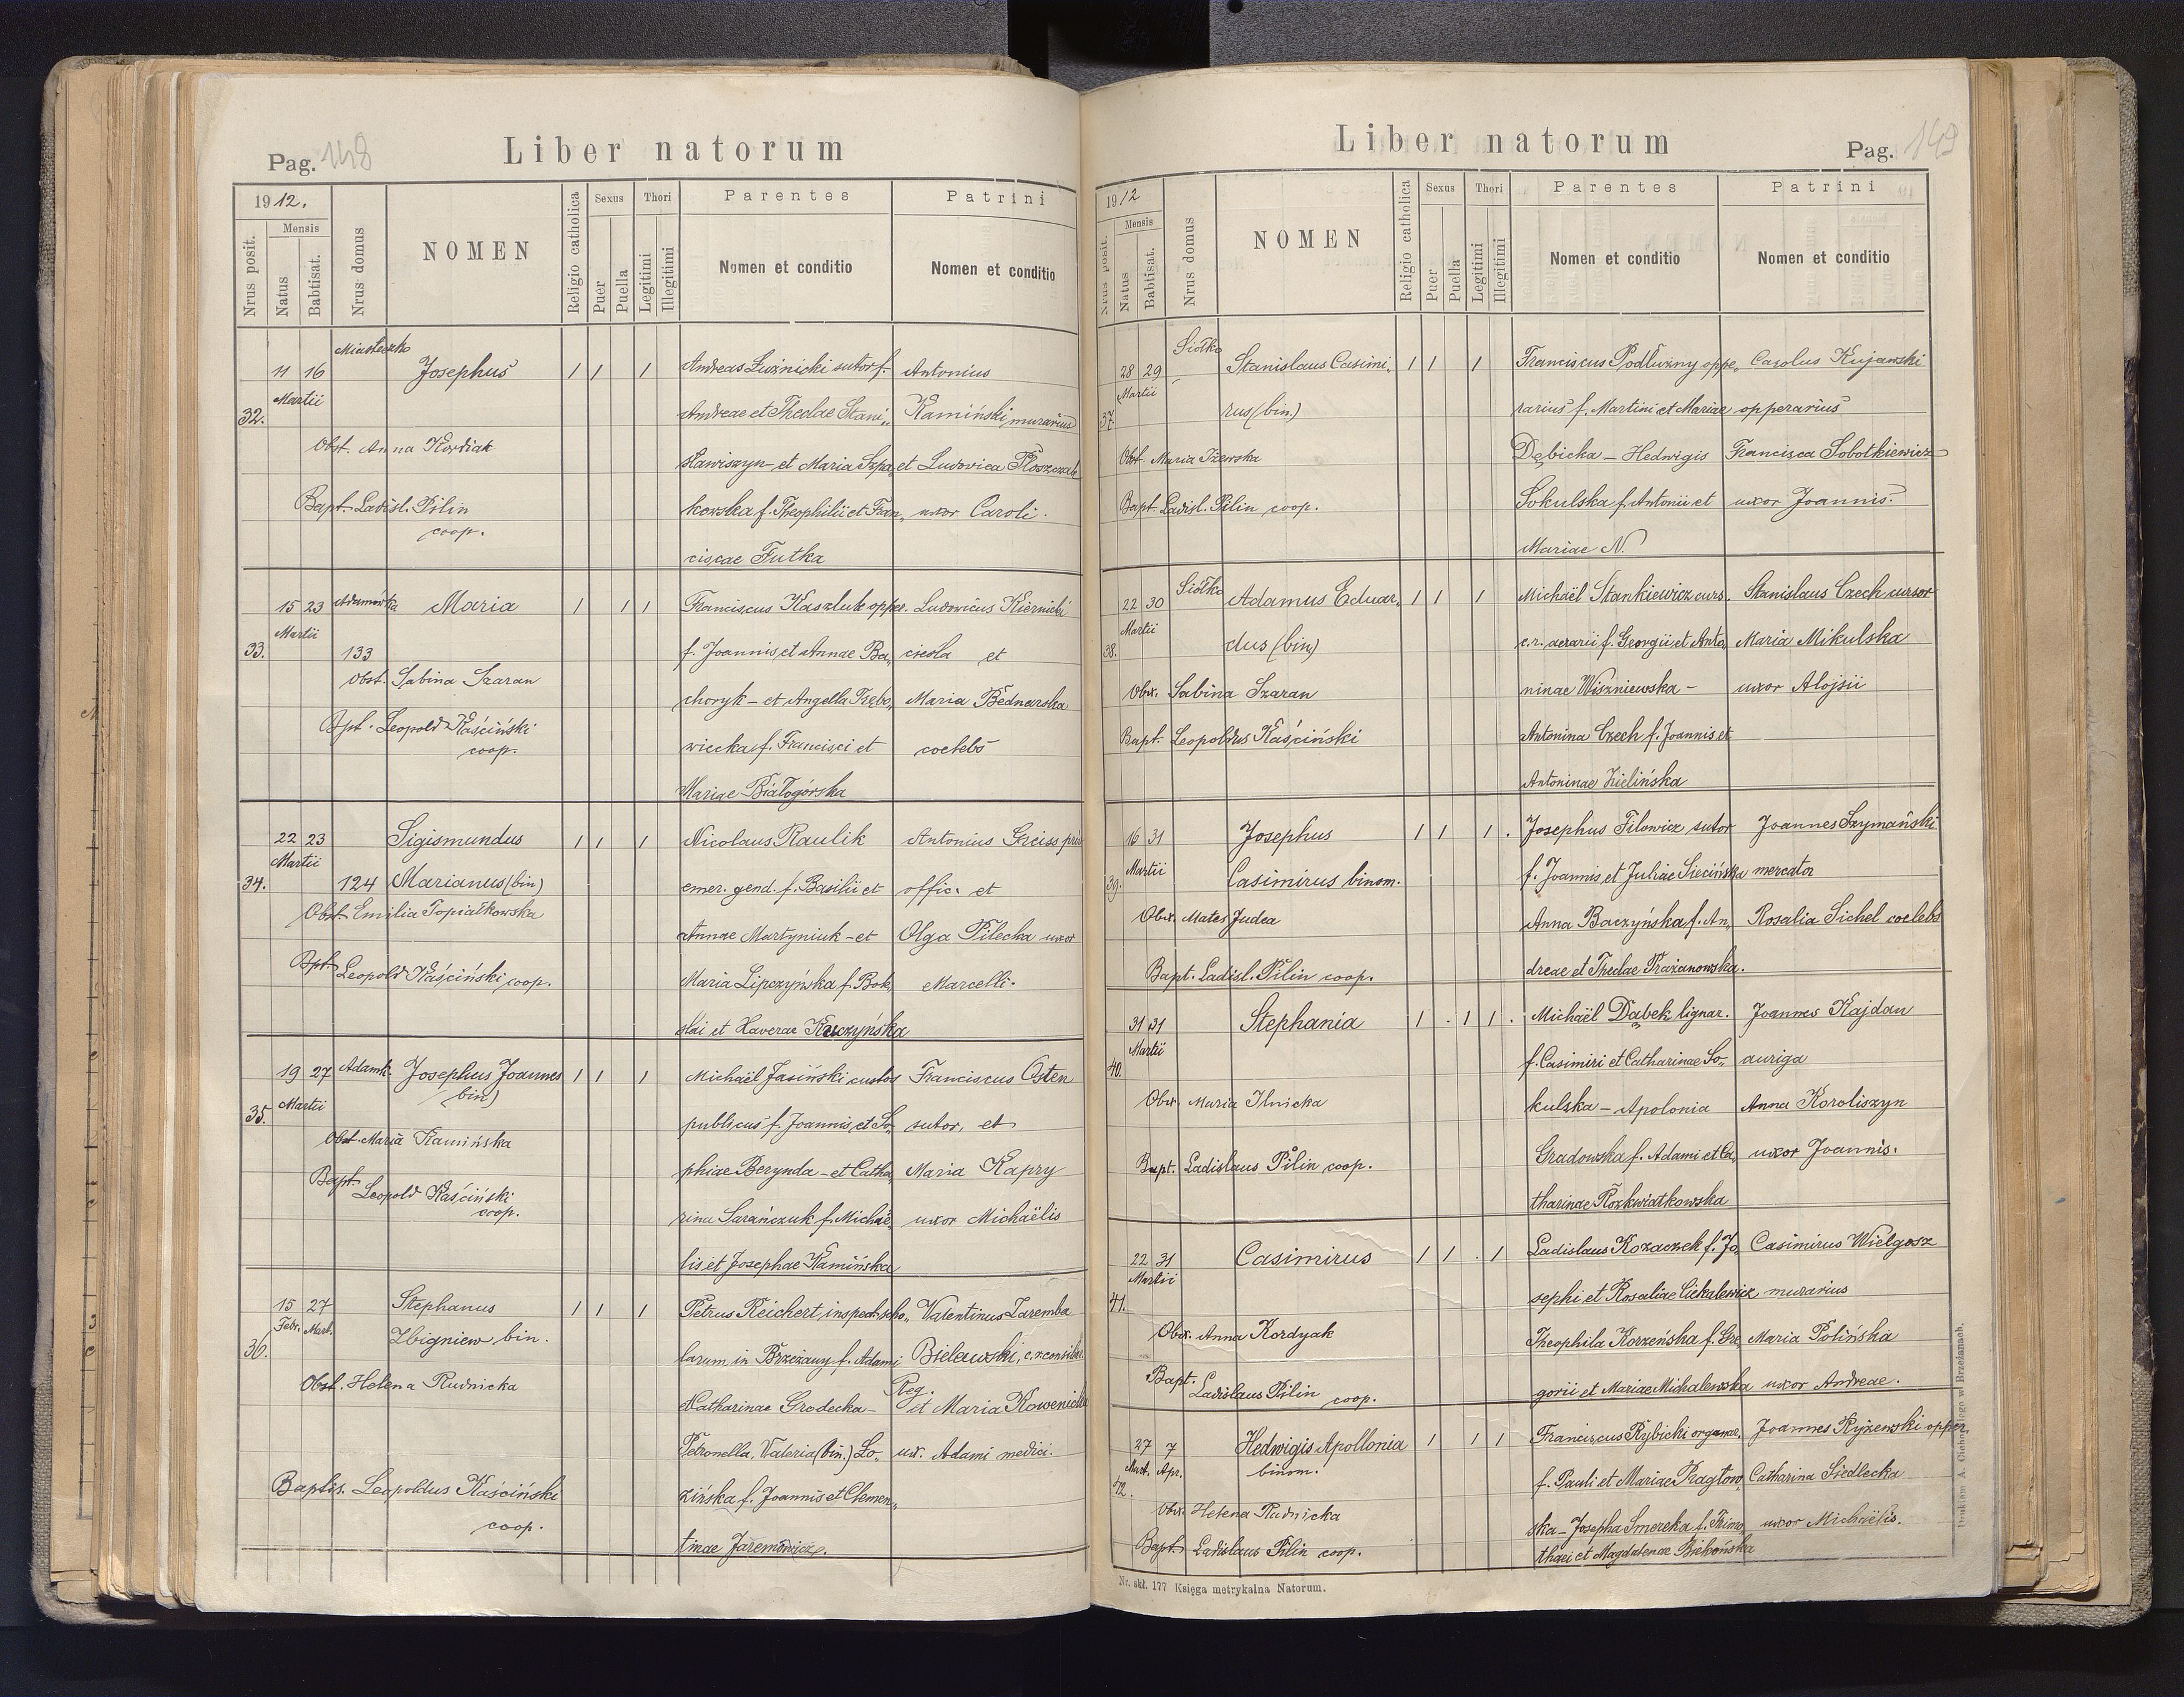 Pag. 148
Liber natorum
1912.
Nrus posit.
Mensis
Natus
Babtisat.
Nrus domus
NOMEN
Religio catholica
Sexus
Puer
Puella
Thori
Legitimi
Illegitimi
Parentes
Nomen et conditio
Patrini
Nomen et conditio
32.
11 16
Martii
Miasteczko
Josephus
1 1 1
Obst. Anna Kordiak
Bapt. Ladisl. Pilin
coop.
Andreas Luznicki sutor f.
Andreae et Theclae Stani„
sławiszyn - et Maria Szpa„
kowska f. Theophilii et Fran„
ciscae Futka
Antonius
Kamiński murarius
et Ludovica Płoszczak
uxor Caroli.
33.
15 23
Martii
Adamówka
133
Maria
1 1 1
Obst. Sabina Szaran
Bpt. Leopold Kaściński
coop.
Franciscus Kaszluk oppe.
f. Joannis et Annae Ba„
choryk - et Angella Trębo„
wiecka f. Francisci et
Mariae Białogórska
Ludovicus Kiernicki
ciesla et
Maria Bednarska
coelebs
34.
22 23
Martii
124
Sigismundus
Marianus (bin)
1 1 1
Obst. Emilia Topiałkowska
Bpt. Leopold Kaściński coop.
Nicolaus Raulik
emer. gend. f. Basilii et
Annae Martyniuk - et
Maria Lipczyńska f. Bok„
slai et Xaverae Kuczyńska
Antonius Greiss priv
offic. et
Olga Pilecka uxor
Marcelli.
35.
19 27
Martii
Adamk.
Josephus Joannes
(bin)
1 1 1
Obst. Maria Kamińska
Bapt. Leopold Kaściński
coop.
Michaël Jasiński custos
publicus f. Joannis et So„
phiae Berynda - et Catha„
rina Sarańczuk f. Michaë„
lis et Josephae Kamińska
Franciscus Osten
sutor, et
Maria Kapry
uxor Michaëlis
36.
15 27
Febr. Mart.
Stephanus
Zbigniew bin.
1 1 1
Obst. Helena Rudnicka
Baptis. Leopoldus Kaściński
coop.
Petrus Reichert, inspect. scho„
larum in Brzeżany f. Adami
et Catharinae Grodecka -
Petronella, Valeria (bin.) Ło„
zińska f. Joannis et Clemen„
tinae Jaremowicz.
Valentinus Zaremba
Bielawski, c. r. consiliar.
Reg.
et Maria Kowenicka
ux. Adami medici.
Liber natorum
Pag. 149
1912
Nrus posit.
Mensis
Natus
Babtisat.
Nrus domus
NOMEN
Religio catholica
Sexus
Puer
Puella
Thori
Legitimi
Illegitimi
Parentes
Nomen et conditio
Patrini
Nomen et conditio
37.
28 29
Martii
Siółko
Stanislaus Casimi„
rus (bin)
1 1 1
Obst. Maria Iżewska
Bapt. Ladisl. Pilin coop.
Franciscus Podlużny oppe„
rarius f. Martini et Mariae
Dębicka - Hedwigis
Sokulska f. Antonii et
Mariae N.
Carolus Kujawski
opperarius
Francisca Sobotkiewicz
uxor Joannis.
38.
22 30
Martii
Siółko
Adamus Eduar„
dus (bin)
1 1 1
Obst. Sabina Szaran
Bapt. Leopoldus Kaściński
Michaël Stankiewicz curs.
c. r. aerarii f. Georgii et Anto„
ninae Wiszniewska -
Antonina Czech f. Joannis et
Antoninae Zielińska
Stanislaus Czech cursor
Maria Mikulska
uxor Alojsii
39.
16 31
Martii
Josephus
Casimirus binom.
1 1 1.
Obst. Mates Judea
Bapt. Ladisl. Pilin coop.
Josephus Filowicz sutor
f. Joannis et Juliae Siecińska
Anna Baczyńska f. An„
dreae et Theclae Prażanowska.
Joannes Szymański
mercator
Rosalia Sichel coelebs
40.
31 31
Martii
Stephania
1 . 1 1 .
Obst. Maria Ilnicka
Bapt. Ladislaus Pilin coop.
Michaël Dąbek lignar.
f. Casimiri et Catharinae So„
kulska - Apolonia
Gradowska f. Adami et Ca„
tharinae Rozkwiatkowska
Joannes Kajdan
auriga
Anna Koroliszyn
uxor Joannis.
41.
22 31
Martii
Casimirus
1 1 . 1
Obst. Anna Kordyak
Bapt. Ladislaus Pilin
coop.
Ladislaus Kozaczek f. Jo„
sephi et Rosaliae Ciekulewicz
Theophila Korzeńska f. Gre„
gorii et Mariae Michalewska
Casimirus Wielgosz
murarius
Maria Polińska
uxor Andreae.
42.
27 7
Mart. Apr.
Hedwigis Apollonia
binom.
1 1 1
Obst. Helena Rudnicka
Bapt. Ladislaus Pilin coop.
Franciscus Rybicki organar.
f. Pauli et Mariae Pragłow„
ska - Josepha Smereka f. Timo„
thaei et Magdalenae Biekońska
Joannes Ryżewski opper.
Catharina Siedlecka
uxor Michaëlis.
Nr. skł. 177 Księga metrykalna Natorum.